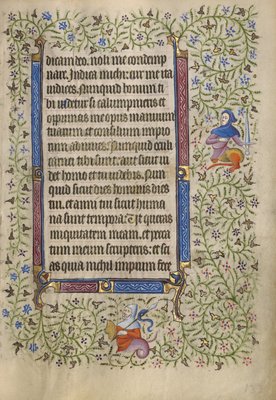 dicam deo. noli me condemp
nare. Indica michi cur me ita
iudices. Nunquid bonum ti
bi videtur si calumpnieris et
opprimas me opus manuum
tuarum et consilium impio
rum adiuves. Nunquid oculi
carnei tibi sunt. aut sicut vi
det homo et tu videbis. Nun
quid sicut dies hominis dies
tui. et anni tui sicut huma
na sunt tempora. et queras
iniquitatem meam. et pecca
tum meum scruteris. et
scias quia nichil impium fece